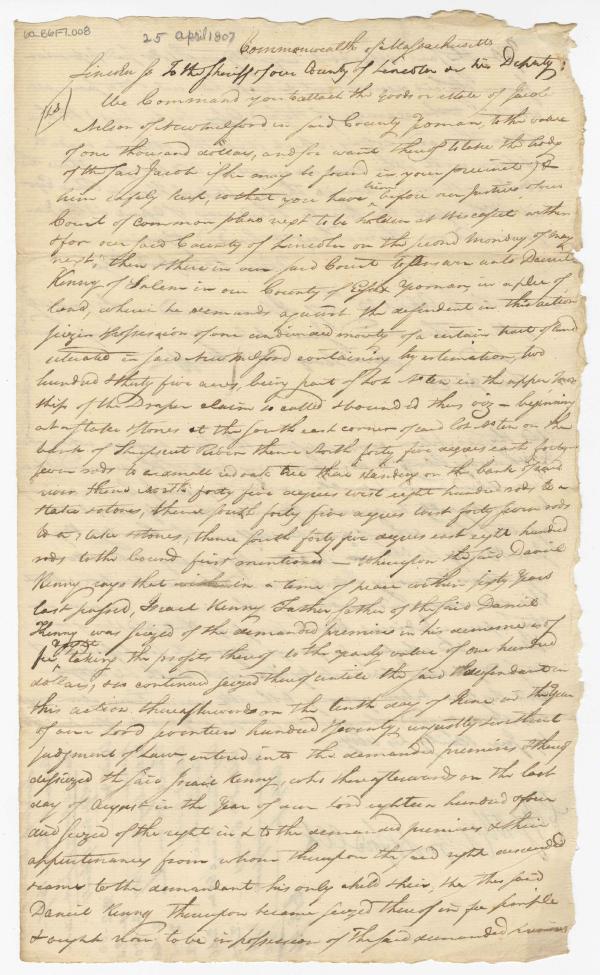 60.86F7.008
25 April 1807
Commonwealth of Massachusetts
Lincoln ss To the Sheriff of our County of Lincoln or his Deputy;
We Command you to attach the goods or estate of Jacob
Nelson of New Milford in said County Yoman, to the value
of one thousand dollars, and for want thereof to take the body
of the said Jacob if he may be found in your precinct &
him safely keep, so that you have him before our Justices of our
Court of common pleas next to be holden at Wiscasset within
& for our said County of Lincoln on the second Monday of May
next; then & there in our said Court to Answer unto Daniel
Kenny of Salem in our County of Essex Yoman, in a plea of
land, wherein he demands against the defendent in this action
seizin & possession of one undivided moiety of a certain tract of land
situated in said New Milford containing by estimation, two
hundred & thirty five acres, being part of Lot No ten in the upper Town
ship of the Draper claim so called & bounded thus viz - beginning
at a stake & stones at the South east corner of said lot No ten on the
bank of Sheepscut River thence North forty five degrees east forty
seven rods to a small red oak tree standing on the bank of said
river thence North forty five degrees west eight hundred rods to a
stake & stones, thence south forty five degrees west forty seven rods
to a stake & stones, thence south forty five degrees east eight hundred
rods to the bound first mentioned - Whereupon the said Daniel
Kenny says that in a time of peace within fifty Years
last passed, Israel Kenny Father of the said Daniel
Kenny was seized of the demanded premises in his demesne as of
fee taking the profits thereof to the yearly value of one hundred
dollars, & so continued seized thereof untill the said defendant in
this action thereafterwards on the tenth day of June in the Year
of our Lord seventeen hundred & seventy unjustly & without
judgment of Law entered into the demanded premises & thereof
disseized the said Israel Kenny, who thereafterwards on the last
day of August in the Year of our lord eighteen hundred & four
died seized of the right in & to the demanded premises & their
appurtenances from whom thereupon the said right descended
& came to the demandant his only child & heir, the said
Daniel Kenny Thereupon became seized thereof in fee simple
& ought now to be in possession of the said demanded premises